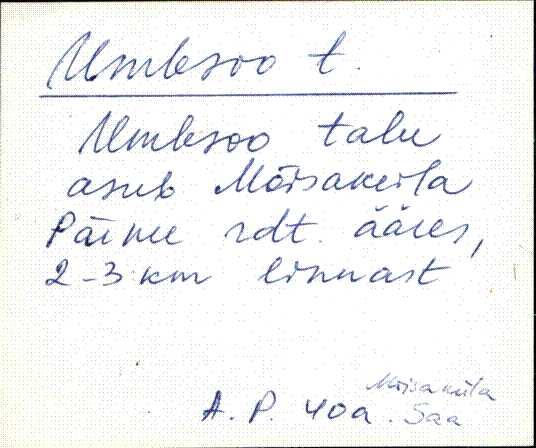 Umbsoo t.
Umbsoo talu
asub Mõisaküla
Pärnu rdt. ääres,
2-3 km linnast
Mõisaküla
A. P. 40a. Saa